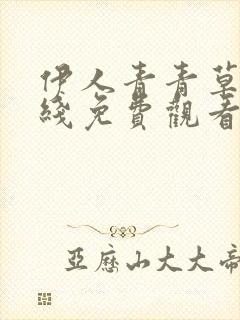 伊人青青草
綫免費觀看
亞歷山大大帝